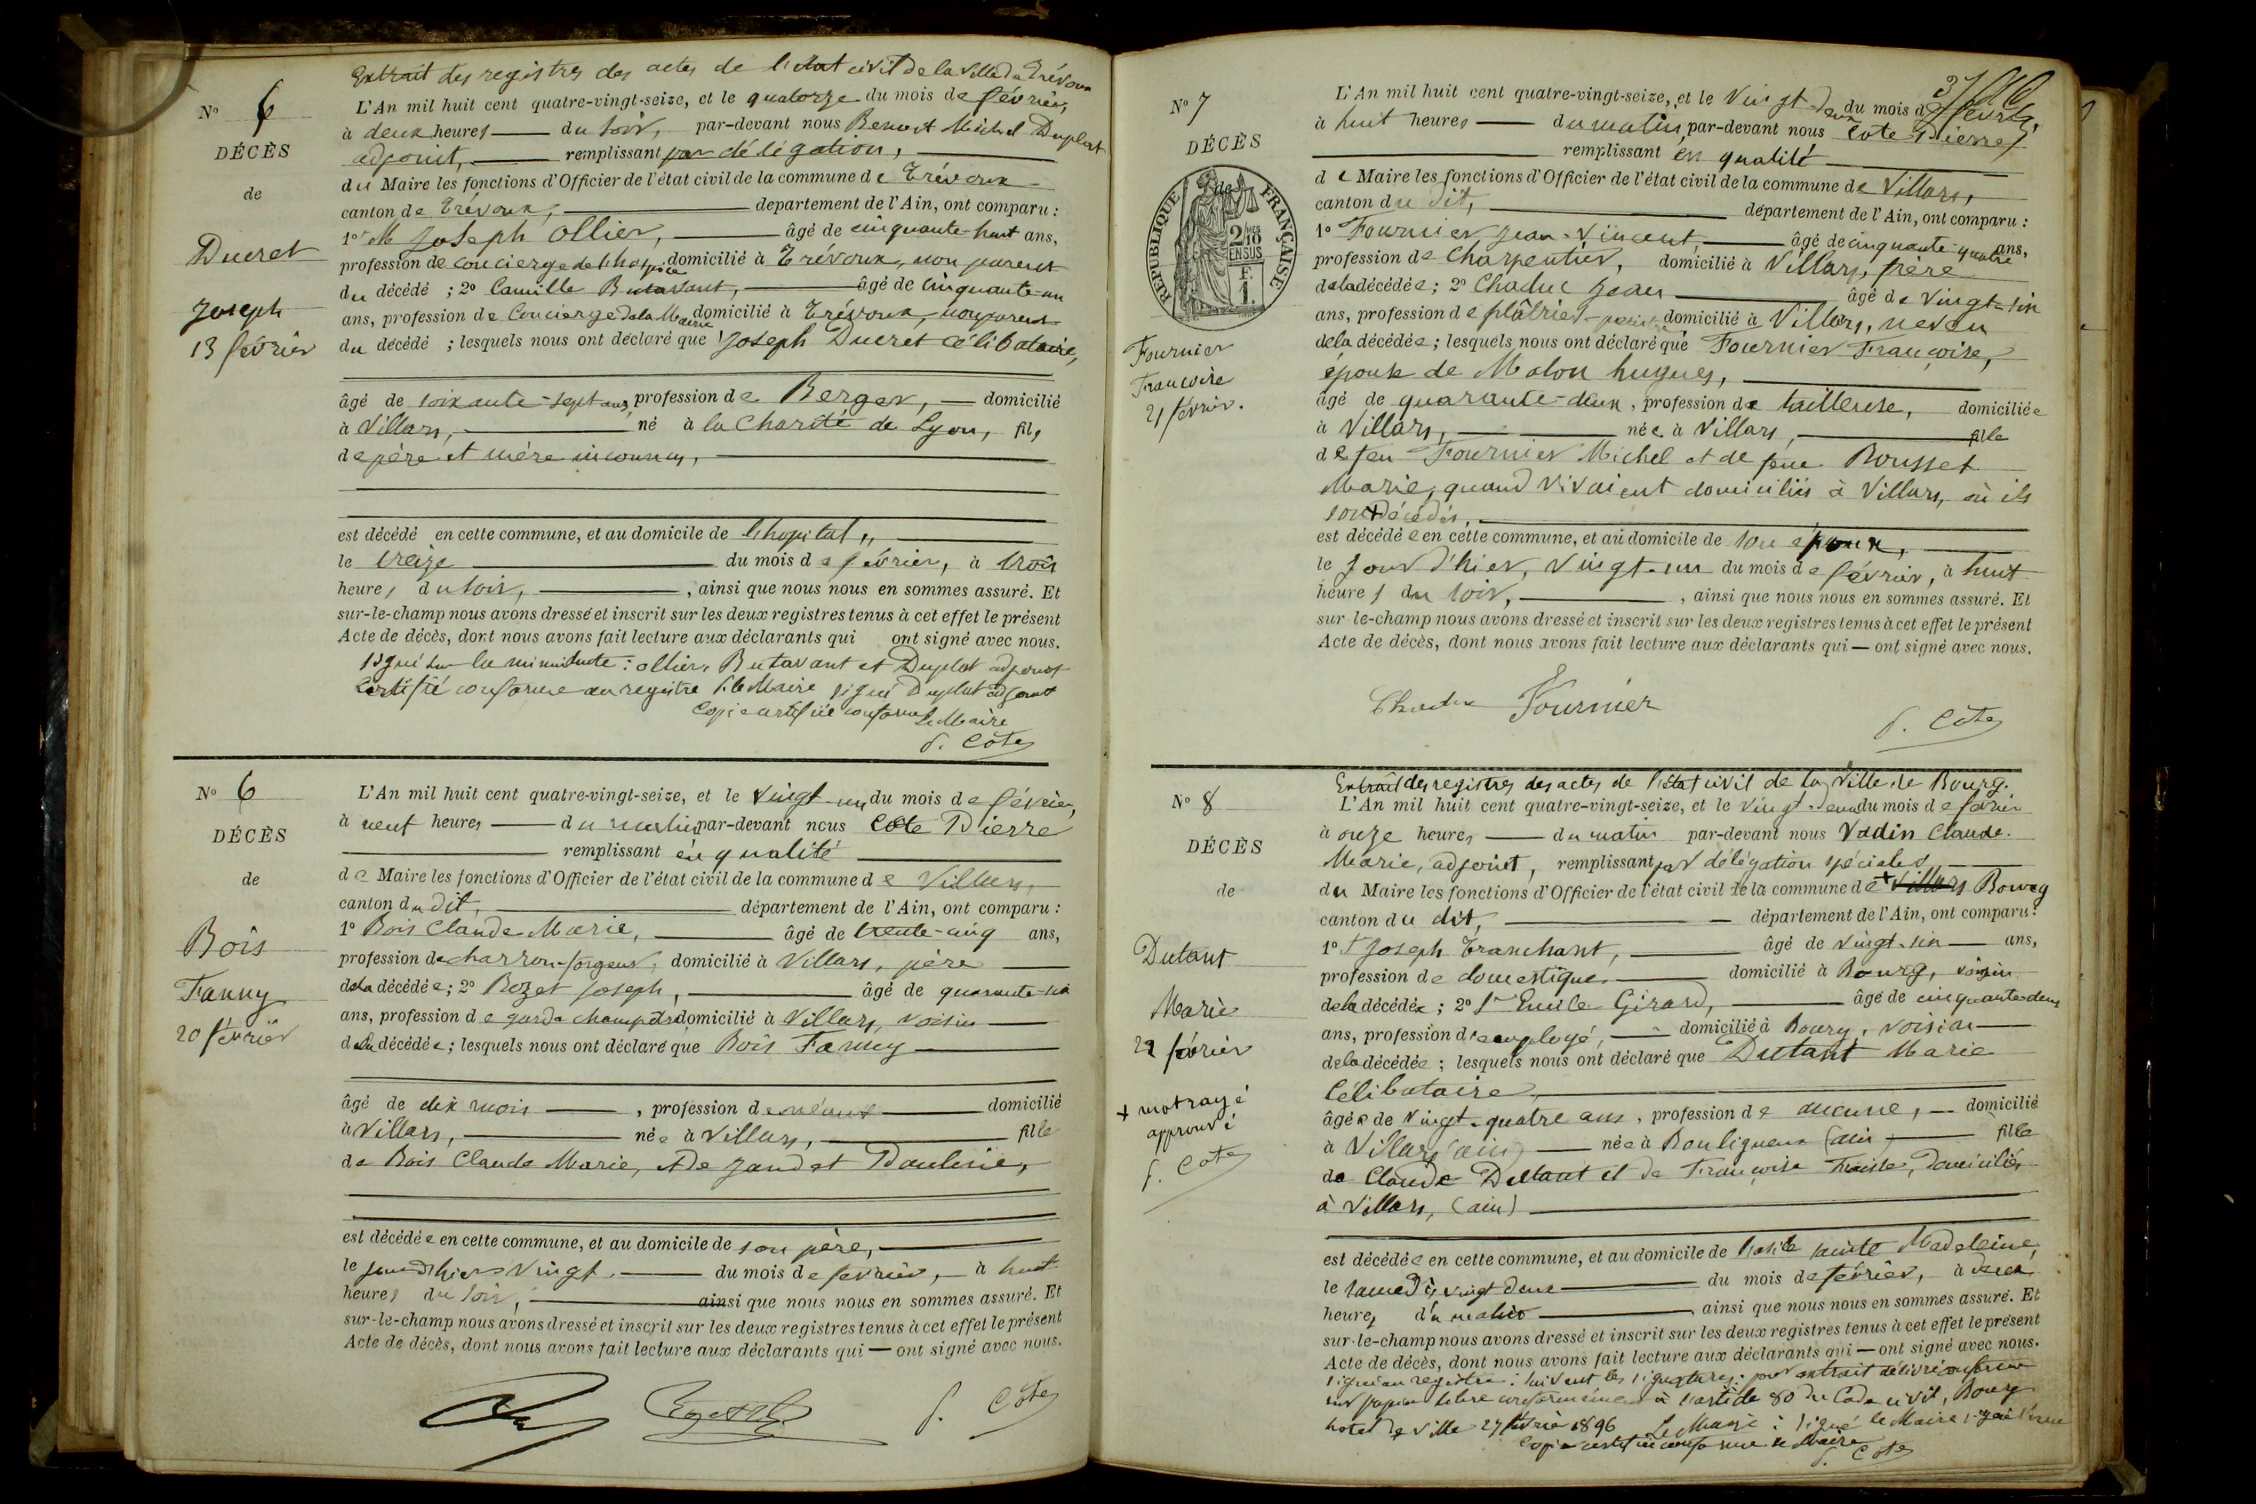 Extrait des registres des actes de l'état civil de la Ville de Trévoux
N° 6
DÉCÈS
de
Ducret
Joseph
13 février
L'An mil huit cent quatre-vingt-seize, et le quatorze du mois de février,
à deux heures du soir, par-devant nous Benoit Michel Duplat
adjoint, remplissant par délégation,
du Maire les fonctions d'Officier de l'état civil de la commune de Trévoux
canton de Trévoux, département de l'Ain, ont comparu :
1° M Joseph Ollier, âgé de cinquante-huit ans,
profession de concierge de l'hospice domicilié à Trévoux, non parent
du décédé ; 2° Camille Butavant, âgé de cinquante-un
ans, profession de Concierge de la Mairie domicilié à Trévoux, non parent
du décédé ; lesquels nous ont déclaré que Joseph Ducret célibataire,
âgé de soixante-sept ans, profession de Berger, domicilié
à Villars, né à la Charité de Lyon, fils
de père et mère inconnus,
est décédé en cette commune, et au domicile de l'hopital,
le treize du mois de février, à trois
heures du soir, ainsi que nous nous en sommes assuré. Et
sur-le-champ nous avons dressé et inscrit sur les deux registres tenus à cet effet le présent
Acte de décès, dont nous avons fait lecture aux déclarants qui ont signé avec nous.
signé sur la minute : Ollier, Butavant et Duplat adjoint
Certifié conforme au registre P. le Maire signé Duplat adjoint
Copie certifiée conforme Le Maire
P. Côte
N° 6
DÉCÈS
de
Bois
Fanny
20 février
L'An mil huit cent quatre-vingt-seize, et le vingt-un du mois de février,
à neuf heures du matin, par-devant nous Côte Pierre
remplissant en qualité
de Maire les fonctions d'Officier de l'état civil de la commune de Villars,
canton du dit, département de l'Ain, ont comparu :
1° Bois Claude-Marie, âgé de trente-cinq ans,
profession de charron-forgeur, domicilié à Villars, père
de la décédée ; 2° Rozet Joseph, âgé de quarante-six
ans, profession de garde champêtre domicilié à Villars, voisin
de la décédée ; lesquels nous ont déclaré que Bois Fanny
âgé de dix mois, profession de néant domicilié
à Villars, née à Villars, fille
de Bois Claude Marie, et de Jandet Pauline,
est décédée en cette commune, et au domicile de son père,
le jour d'hier vingt du mois de février, à huit
heures du soir, ainsi que nous nous en sommes assuré. Et
sur-le-champ nous avons dressé et inscrit sur les deux registres tenus à cet effet le présent
Acte de décès, dont nous avons fait lecture aux déclarants qui ont signé avec nous.
P. Côte
37
N° 7
DÉCÈS
de
RÉPUBLIQUE FRANÇAISE
2/10 EN SUS
F. 1.
Fournier
Françoise
21 février.
L'An mil huit cent quatre-vingt-seize, et le Vingt-deux du mois de février,
à huit heures du matin, par-devant nous Côte Pierre
remplissant en qualité
de Maire les fonctions d'Officier de l'état civil de la commune de Villars,
canton du dit, département de l'Ain, ont comparu :
1° Fournier Jean-Vincent, âgé de cinquante-quatre ans,
profession de Charpentier, domicilié à Villars, frère
de la décédée ; 2° Chaduc Jean âgé de vingt-six
ans, profession de plâtrier-peintre domicilié à Villars, neveu
de la décédée ; lesquels nous ont déclaré que Fournier Françoise,
épouse de Malon hugues,
âgé de quarante-deux, profession de tailleuse, domiciliée
à Villars, née à Villars, fille
de feu Fournier Michel et de feue Rousset
Marie, quand vivaient domiciliés à Villars, où ils
sont décédés,
est décédée en cette commune, et au domicile de son époux,
le jour d'hier, vingt-un du mois de février, à huit
heures du soir, ainsi que nous nous en sommes assuré. Et
sur-le-champ nous avons dressé et inscrit sur les deux registres tenus à cet effet le présent
Acte de décès, dont nous avons fait lecture aux déclarants qui ont signé avec nous.
Chaduc Fournier
P. Côte
Extrait des registres des actes de l'état civil de la Ville de Bourg.
N° 8
DÉCÈS
de
Dutant
Marie
22 février
+ mot rayé
approuvé
P. Cote
L'An mil huit cent quatre-vingt-seize, et le vingt-deux du mois de février
à onze heures du matin par-devant nous Vadin Claude-
Marie, adjoint, remplissant par délégation spéciale,
du Maire les fonctions d'Officier de l'état civil de la commune de + Villars Bourg
canton du dit, département de l'Ain, ont comparu :
1° Sr Joseph Tranchant, âgé de vingt-six ans,
profession de domestique domicilié à Bourg, voisin
de la décédée ; 2° Sr Emile Girard, âgé de cinquante-deux
ans, profession d'employé, domicilié à Bourg, voisin
de la décédée ; lesquels nous ont déclaré que Dutant Marie
Célibataire,
âgée de vingt-quatre ans, profession de aucune, domicilié
à Villars (ain) née à Bouligneux (ain) fille
de Claude Dutant et de Françoise, domiciliés
à Villars, (ain)
est décédée en cette commune, et au domicile de l'asile sainte Madeleine,
le samedi vingt deux du mois de février, à
heures du matin ainsi que nous nous en sommes assuré. Et
sur-le-champ nous avons dressé et inscrit sur les deux registres tenus à cet effet le présent
Acte de décès, dont nous avons fait lecture aux déclarants qui ont signé avec nous.
signé au registre : suivent les signatures : pour extrait délivré conforme
sur papier libre conformément à l'article 80 du Code civil, Bourg
hotel de ville 27 février 1896 Le Maire : signé le Maire
Copie certifiée conforme le Maire
P. Cote